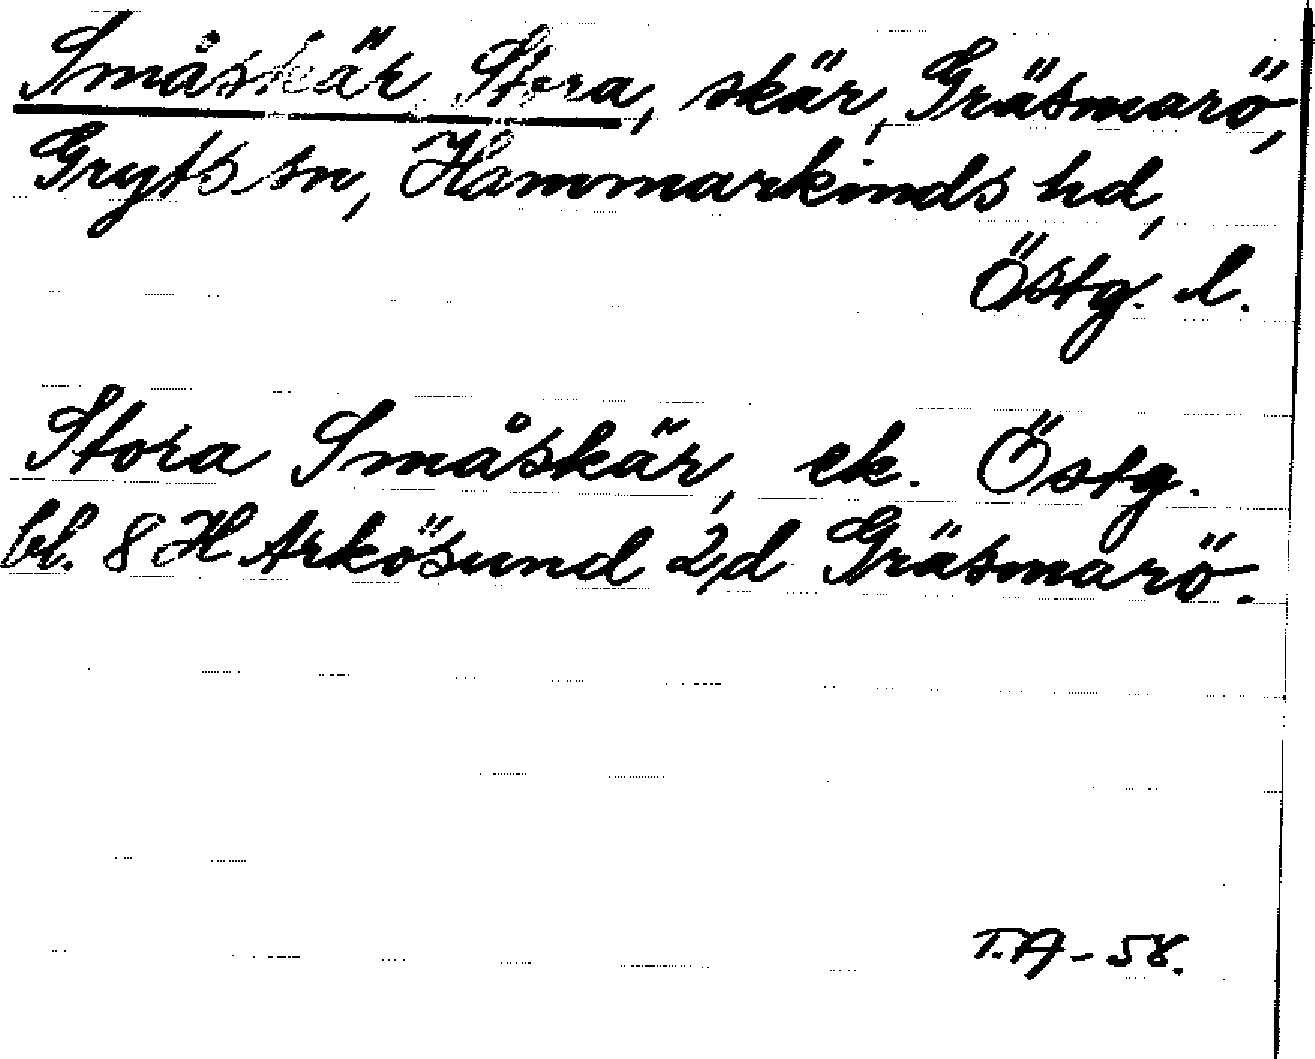 Småskär Stora, skär, Gräsmarö,
Gryts sn, Hammarkinds hd,
Östg. l.
Stora Småskär, ek. Östg.
bl. 8 H Arkösund 2,d Gräsmarö.
T.A - 58.